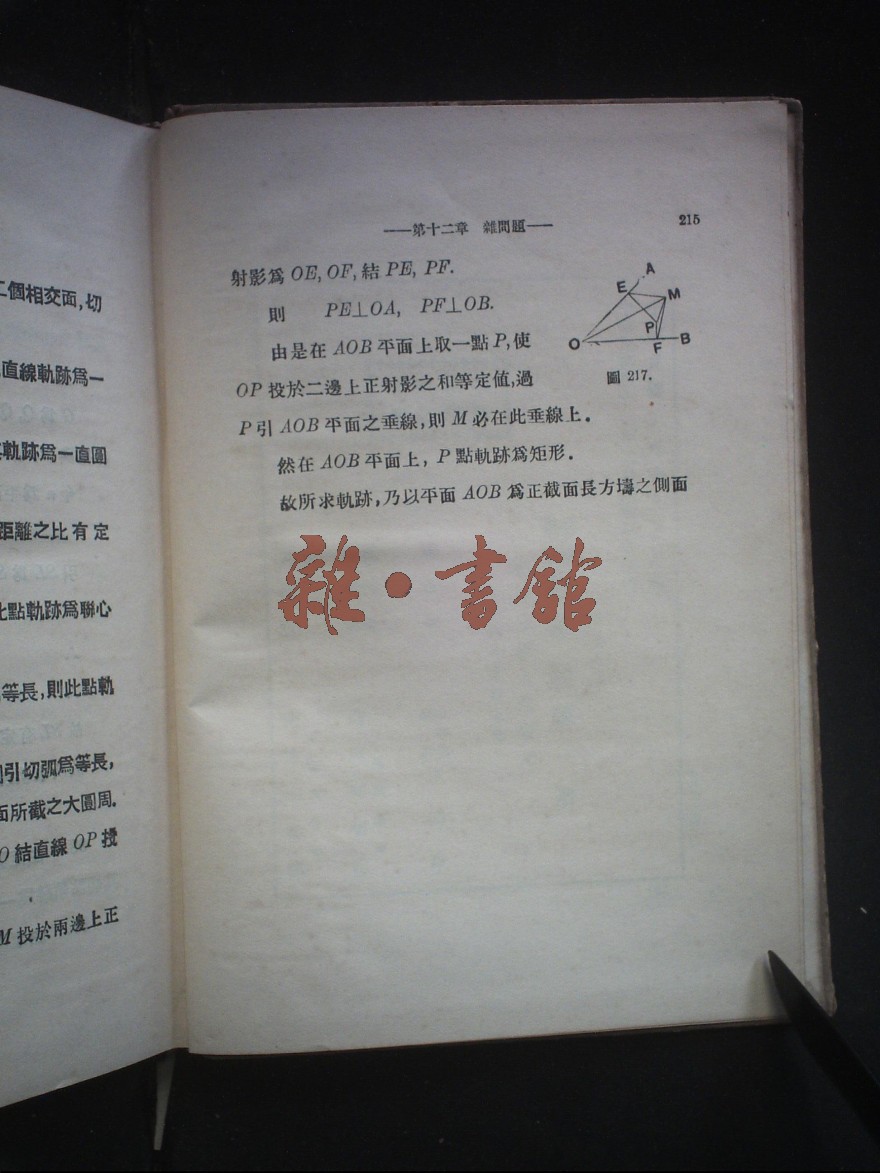 二個相交面,切
直線軌跡爲一
軌跡爲一直圓
距離之比有定
比點軌跡爲聯心
等長,則此點軌
引切弧爲等長,
面所截之大圓周.
O 結直線 OP 投
M 投於兩邊上正
——第十二章 雜問題—— 215
射影爲 OE, OF, 結 PE, PF.
則 PE⊥OA, PF⊥OB.
由是在 AOB 平面上取一點 P, 使
OP 投於二邊上正射影之和等定値,過
P 引 AOB 平面之垂線,則 M 必在此垂線上.
然在 AOB 平面上, P 點軌跡爲矩形.
故所求軌跡,乃以平面 AOB 爲正截面長方壔之側面
A
E
M
P
O
F
B
圖 217.
雜·書館